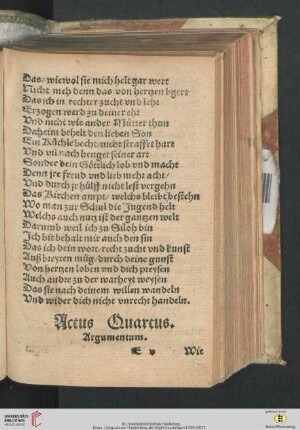 Das/wiewol sie mich helt gar wert
Nicht meh denn das von hertzen bgert
Das ich in rechter zucht vnd lehr
Erzogen werd zu deiner ehr
Vnd nicht wie ander Mütter thun
Daheim behelt den lieben Son
Ein Küchle becht/nicht straffet hart
Vnd vil nach henget seiner art
Sonder dein Göttlich lob vnd macht
Denn jre freud vnd lieb mehr acht/
Vnd durch jr hülff nicht lest vergehn
Das Kirchen ampt/welchs bleibt bestehn
Wo man zur Schul die Jugend helt
Welchs auch nutz ist der gantzen welt
Darumb weil ich zu Siloh bin
Ich bit behalt mir auch den sin
Das ich dein wort recht zucht vnd kunst
Auß breyten müg/durch deine gunst
Von hertzen loben vnd dich preysen
Auch andre zu der warheyt weysen
Das sie nach deinem willen wandeln
Vnd wider dich nicht vnrecht handeln.
Actus Quartus.
Argumentum.
E v Wie
UNIVERSITÄTS-
BIBLIOTHEK
HEIDELBERG
© Universitätsbibliothek Heidelberg